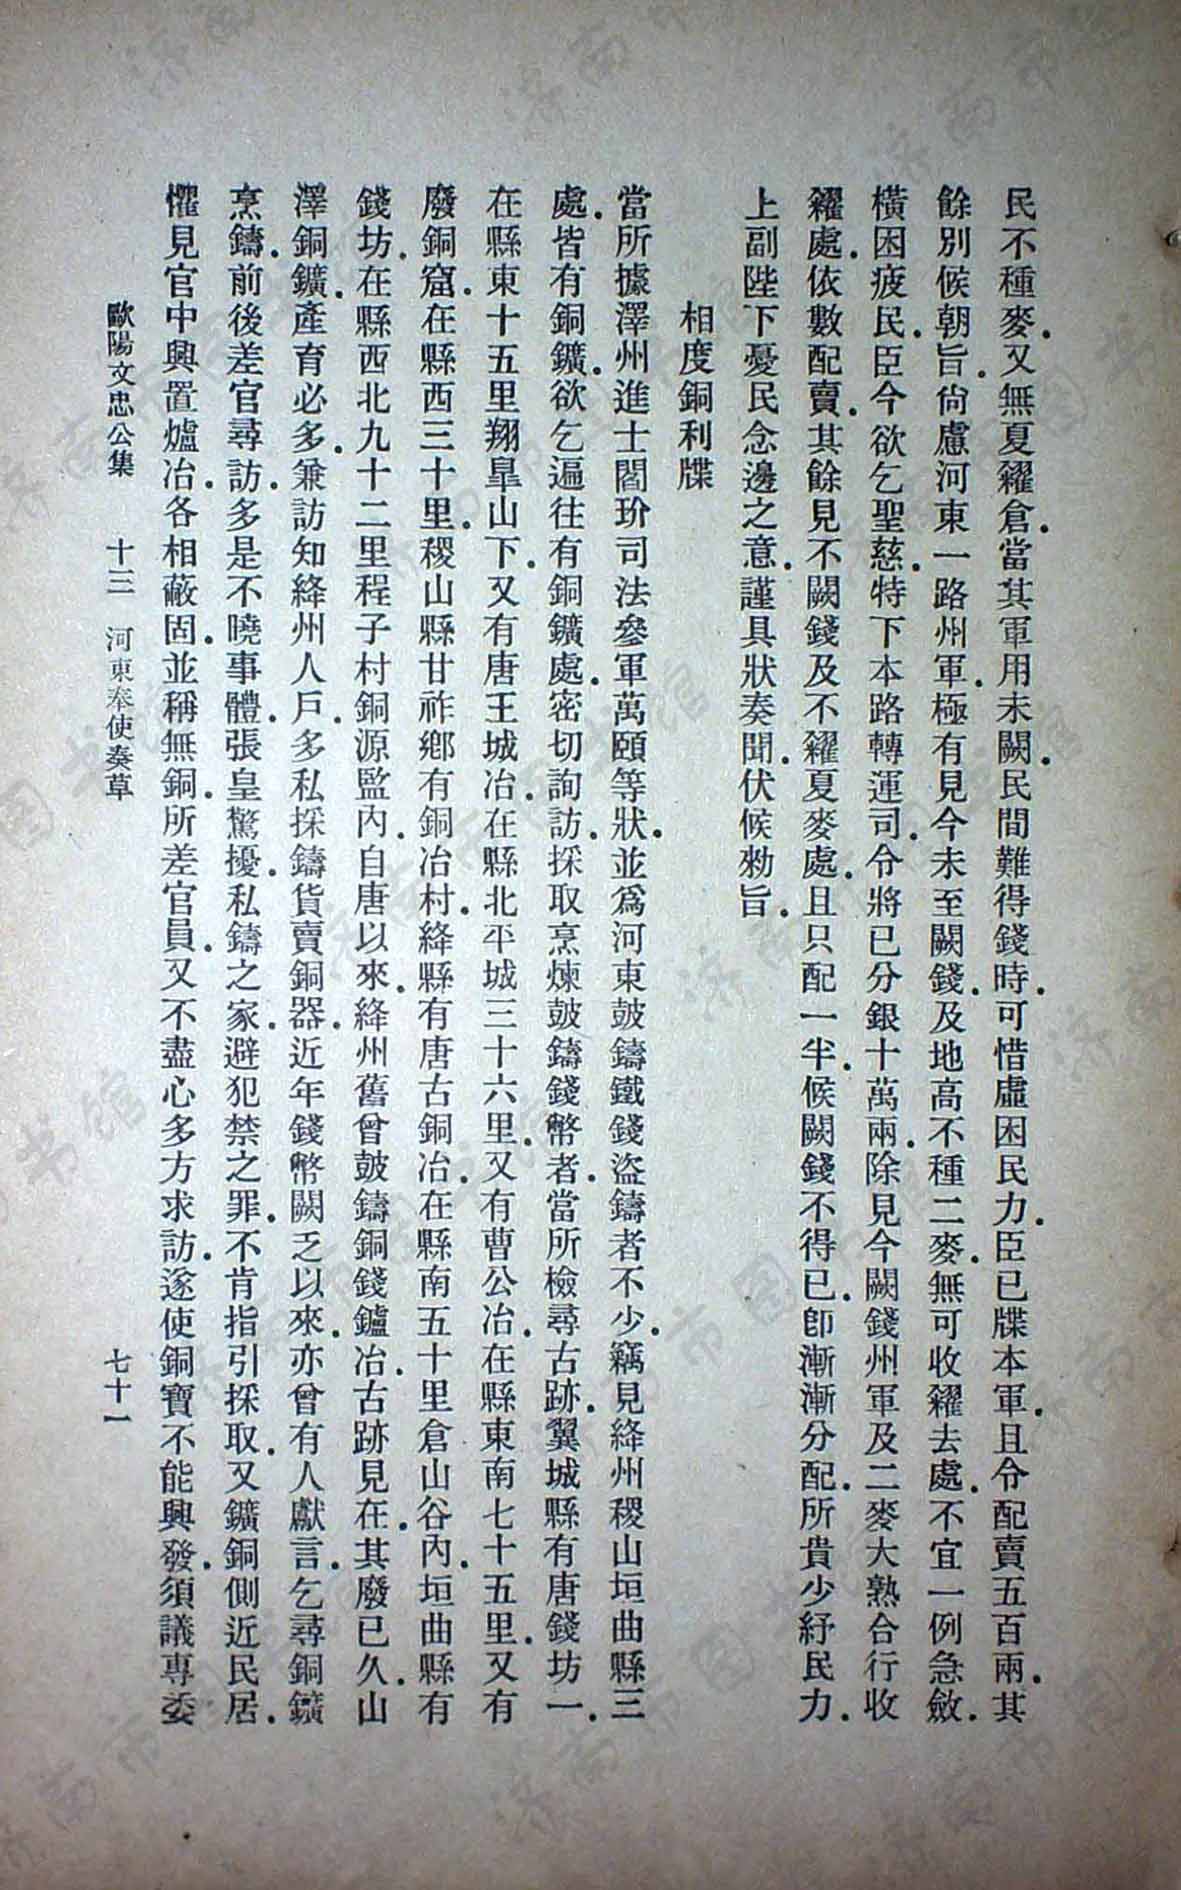 民不種麥.又無夏糴倉.當其軍用未闕.民間難得錢時.可惜虛困民力.臣已牒本軍.且令配賣五百兩.其
餘別候朝旨.尙慮河東一路州軍.極有見今未至闕錢.及地高不種二麥.無可收糴去處.不宜一例急斂.
橫困疲民.臣今欲乞聖慈.特下本路轉運司.令將已分銀十萬兩.除見今闕錢州軍及二麥大熟合行收
糴處.依數配賣.其餘見不闕錢及不糴夏麥處.且只配一半.候闕錢不得已.卽漸漸分配.所貴少紓民力.
上副陛下憂民念邊之意.謹具狀奏聞.伏候勑旨.
相度銅利牒
當所據澤州進士閻玠司法參軍萬頤等狀.並爲河東鼓鑄鐵錢.盜鑄者不少.竊見絳州稷山垣曲縣三
處.皆有銅鑛.欲乞遍往有銅鑛處.密切詢訪.採取烹煉鼓鑄錢幣者.當所檢尋古跡.翼城縣有唐錢坊一.
在縣東十五里翔臯山下.又有唐王城冶.在縣北平城三十六里.又有曹公冶.在縣東南七十五里.又有
廢銅窟.在縣西三十里.稷山縣甘祚鄕有銅冶村.絳縣有唐古銅冶.在縣南五十里倉山谷內.垣曲縣有
錢坊.在縣西北九十二里程子村銅源監內.自唐以來.絳州舊曾鼓鑄銅錢鑪冶.古跡見在.其廢已久.山
澤銅鑛.產育必多.兼訪知絳州人戶.多私採鑄貨賣銅器.近年錢幣闕乏以來.亦曾有人獻言.乞尋銅鑛
烹鑄.前後差官尋訪.多是不曉事體.張皇驚擾.私鑄之家.避犯禁之罪.不肯指引採取.又鑛銅側近民居.
懼見官中興置爐冶.各相蔽固.並稱無銅.所差官員.又不盡心多方求訪.遂使銅寶不能興發.須議專委
歐陽文忠公集 十三 河東奉使奏草 七十一